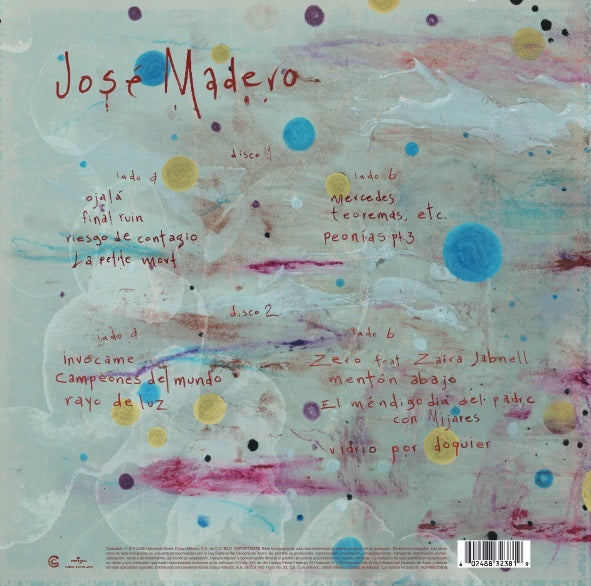 José Madero
disco 1
lado a
ojalá
final ruin
riesgo de contagio
La petite mort
lado b
mercedes
teoremas, etc.
peonías pt.3
disco 2
lado a
invócame
Campeones del mundo
rayo de luz
lado b
Zero feat. Zaira Jabnell
mentón abajo
El méndigo día del padre
con Mijares
vidrio por doquier
6 02488 32381 9